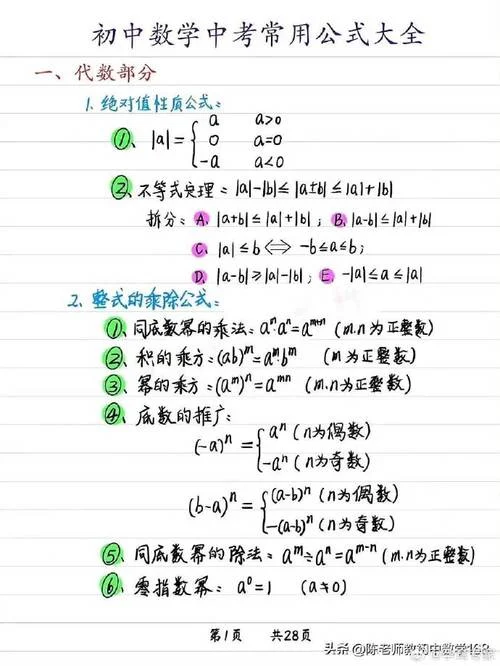 初中数学中考常用公式大全
一、代数部分
1. 绝对值性质公式:
①、|a|={a a>0
0 a=0
-a a<0
②、不等式定理:|a|-|b|≤|a±b|≤|a|+|b|
拆分:A、|a+b|≤|a|+|b|;B、|a-b|≤|a|+|b|
C、|a|≤b⇔-b≤a≤b;
D、|a-b|≥|a|-|b|;E、-|a|≤a≤|a|
2、整式的乘除公式:
①、同底数幂的乘法:aᵐ·aⁿ=aᵐ⁺ⁿ(m.n为正整数)
②、积的乘方:(ab)ᵐ=aᵐ·bᵐ (m为正整数)
③、幂的乘方:(aᵐ)ⁿ=aᵐⁿ (m.n为正整数)
④、底数的推广:
(-a)ⁿ={aⁿ(n为偶数)
-aⁿ(n为奇数)
(b-a)ⁿ={(a-b)ⁿ(n为偶数)
-(a-b)ⁿ(n为奇数)
⑤、同底数幂的除法:aᵐ÷aⁿ=aᵐ⁻ⁿ(m.n为正整数)
⑥、零指数幂:a⁰=1 (a≠0)
第1页 共28页
头条@陈老师教初中数学168